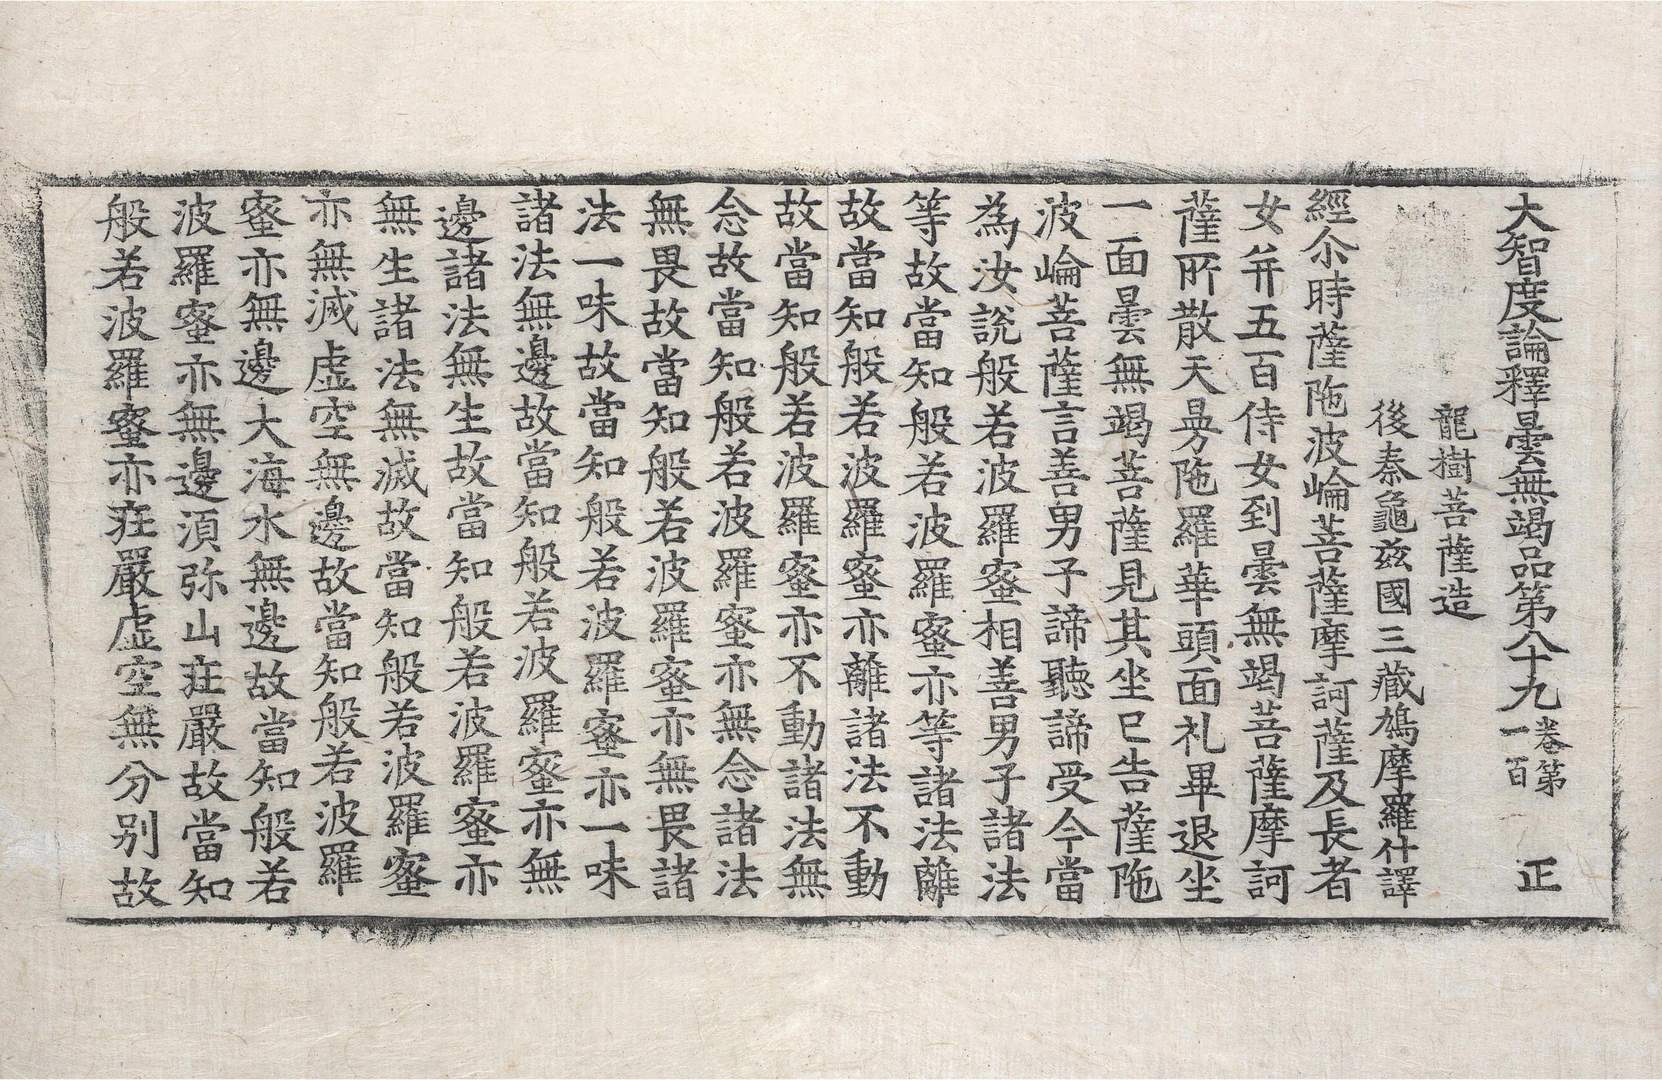 大智度論釋曇無竭品第八十九 卷第一百 正
龍樹菩薩造
後秦龜兹國三藏鳩摩羅什譯
經尒時薩陁波崘菩薩摩訶薩及長者
女并五百侍女到曇無竭菩薩摩訶
薩所散天曼陁羅華頭面礼畢退坐
一面曇無竭菩薩見其坐已告薩陁
波崘菩薩言善男子諦聽諦受今當
為汝說般若波羅蜜相善男子諸法
等故當知般若波羅蜜亦等諸法離
故當知般若波羅蜜亦離諸法不動
故當知般若波羅蜜亦不動諸法無
念故當知般若波羅蜜亦無念諸法
無畏故當知般若波羅蜜亦無畏諸
法一味故當知般若波羅蜜亦一味
諸法無邊故當知般若波羅蜜亦無
邊諸法無生故當知般若波羅蜜亦
無生諸法無滅故當知般若波羅蜜
亦無滅虛空無邊故當知般若波羅
蜜亦無邊大海水無邊故當知般若
波羅蜜亦無邊須弥山莊嚴故當知
般若波羅蜜亦莊嚴虛空無分別故